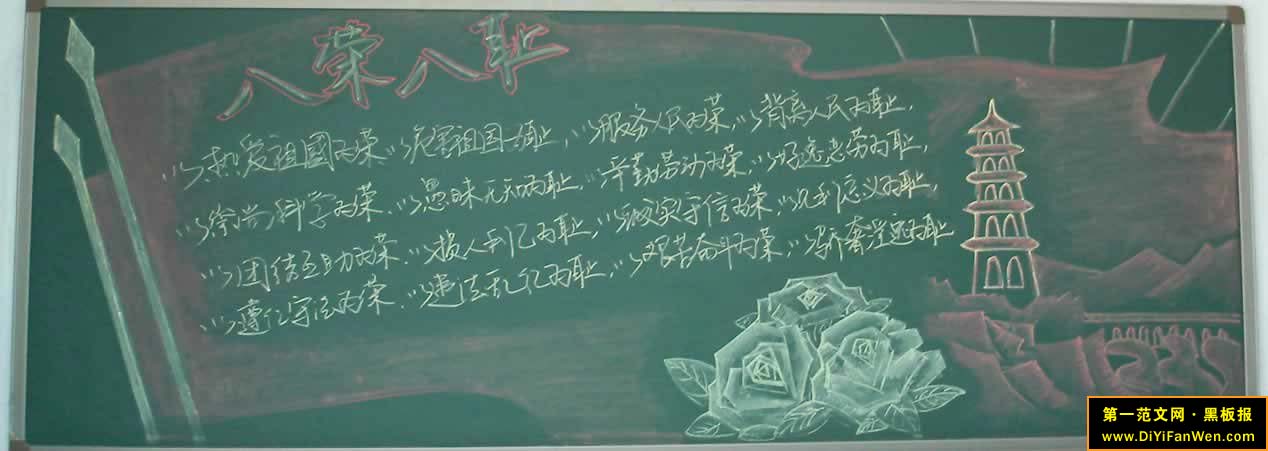 八荣八耻
以热爱祖國为荣以危害祖国为耻，以服务人民为荣，以背离人民为耻，
以崇尚科学为荣、以愚昧无知为耻，以辛勤劳动为荣、以好逸恶劳为耻，
以团结互助为荣、以损人利己为耻，以诚实守信为荣、以见利忘义为耻，
以遵纪守法为荣、以违法乱纪为耻，以艰苦奋斗为荣、以骄奢淫逸为耻
第一范文网·黑板报
www.DiYiFanWen.com